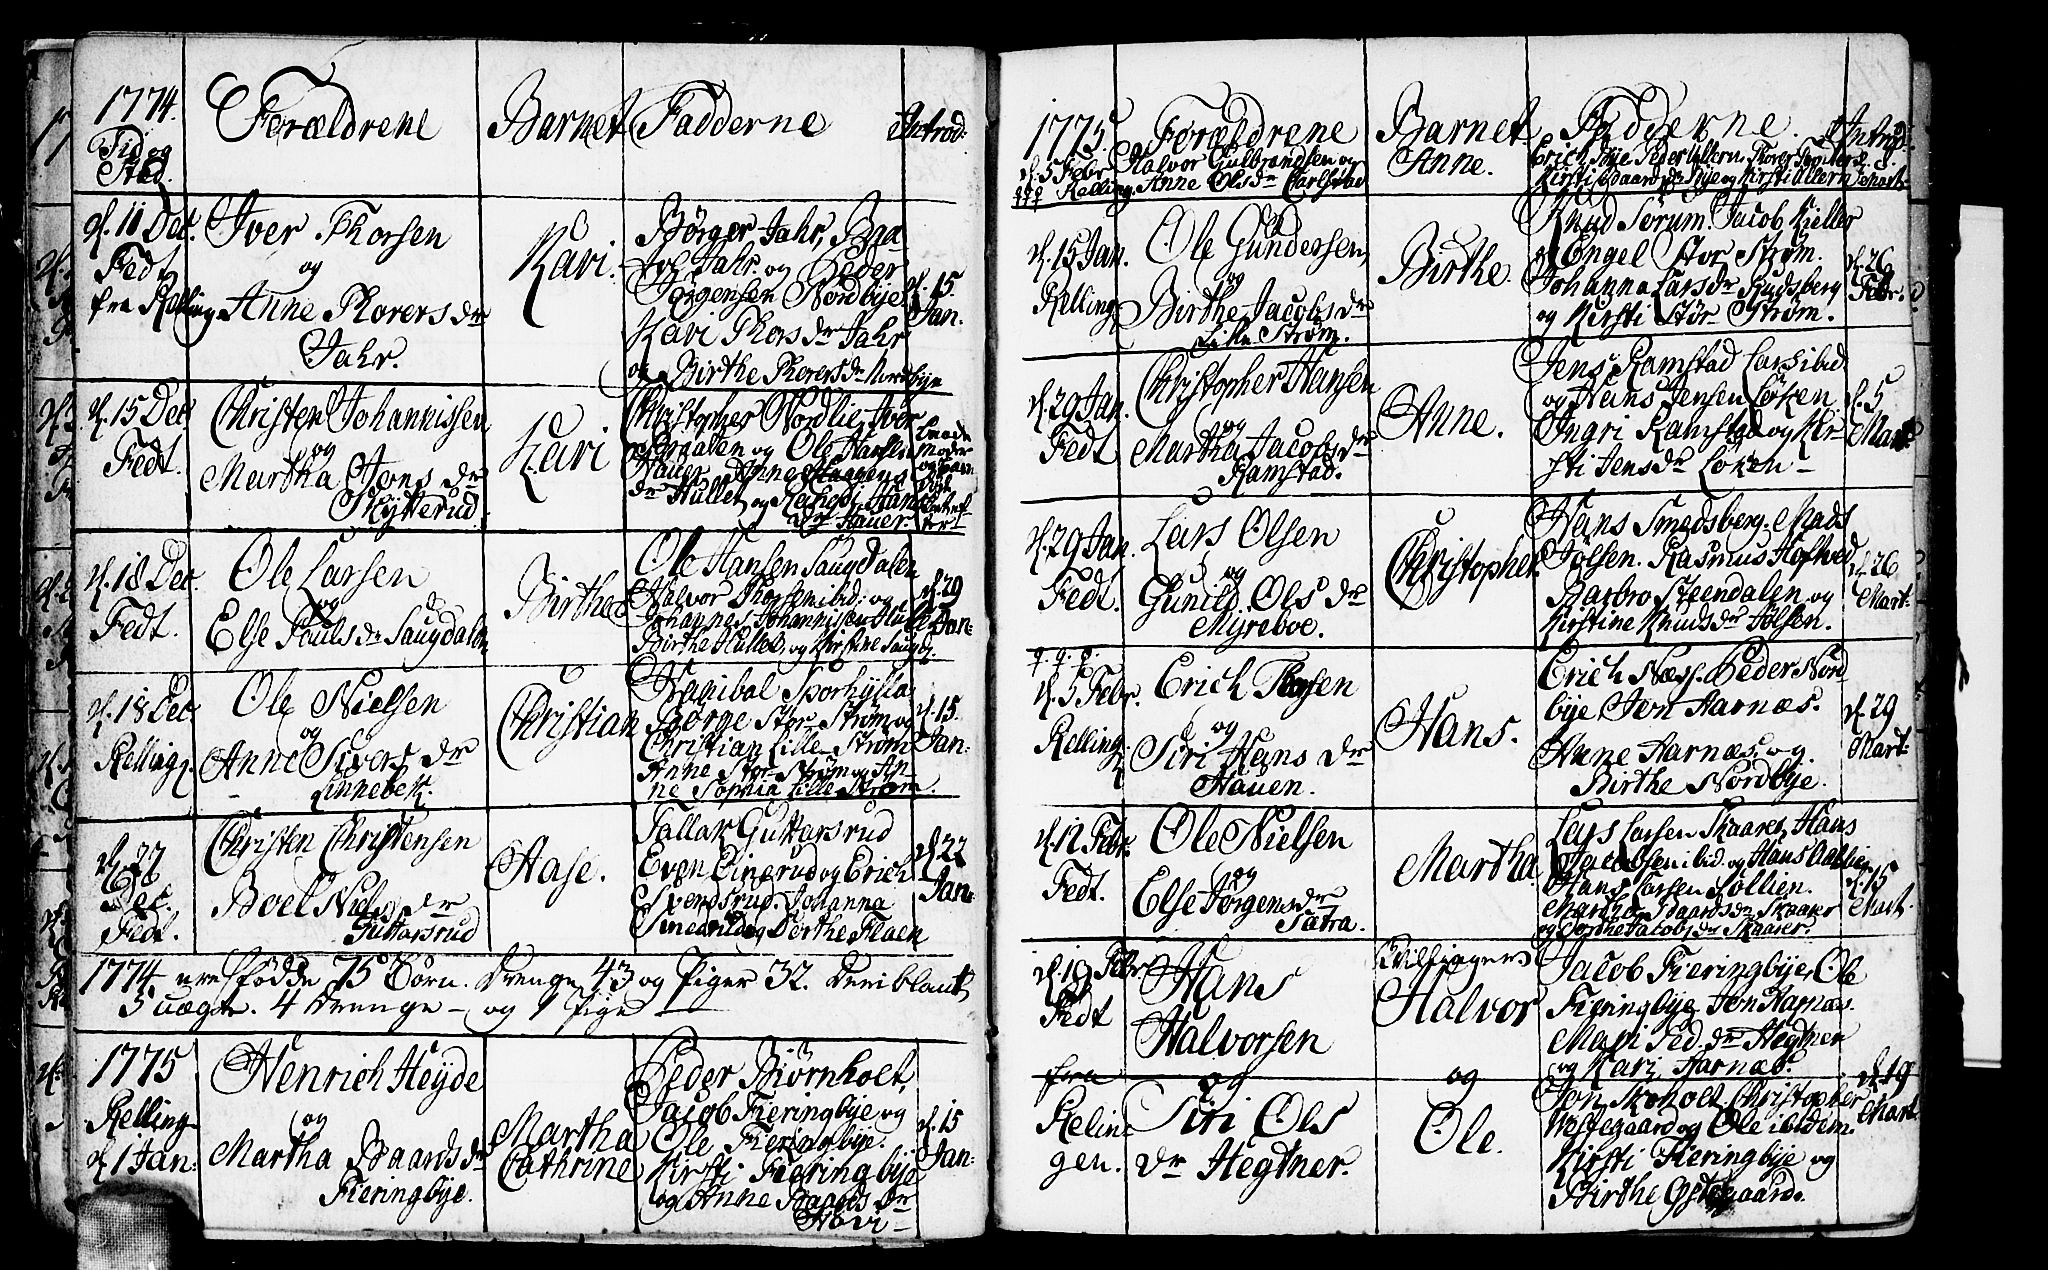 1774.
Tid og
Sted.
Forældrene
Barnet
Fadderne
Introd:
d. 11 Dec.
Fedt
fra Relling
Iver Thorsen
og
Anne Thorers dr
Jahr.
Kari.
Børger Jahr, Baa
Jahr og Peder
Jørgensen Nordbye
Kari Thors dr Jahr
og Birthe Thorers dr Nordbye
d. 15.
Jan.
d. 15 Dec
Fedt.
Christen Johannissen
og
Martha Jens dr
Skytterud.
Kari
Christopher Nordlie, Iver
og Ole Hansen
Hauer. Anne Haagens
dr Hullet og Hans
dr Hauer.
d. 18 Dec.
Fedt.
Ole Larsen
og
Else Pouls dr Saugdalen
Birthe
Ole Hansen Saugdalen
Halvor Thorsen ibid: og
Johannes Johannissen
Birthe Hullet, og Kirstine
d. 29
Jan:
d. 18 Dec
Relling.
Ole Nielsen
og
Anne Sivers dr
Linnebek.
Christian
Hanibal Sporhylla
Børge Stor Strøm og
Christian Lille Strøm
Anne Stor Strøm og An-
ne Sophia Lille Strøm.
d. 15.
Jan:
d. 27
Dec.
Fedt.
Christen Christensen
Boel Niels dr
Guttarsrud
Aase.
Tallak Guttarsrud
Even Einerud og Erich
Sverdsrud. Johanna
og Dorthe Flaen
d. 22
Jan:
1774 ere fødde 75 Børn. Drenge 43 og Piger 32. Deriblant
5 uægte. 4 Drenge - og 1 Pige
1775
Relling
d. 1 Jan:
Henrich Heyde
og
Martha Baards dr
Fieringbye.
Martha
Cathrine
Peder Biørnholt,
Jacob Fieringbye og
Ole Fieringbye.
Kirsti Fieringbye
og Anne Baards dr
d. 15
Jan:
1775.
Forældrene
Barnet
Fadderne.
Introd:
d. 5 Febr.
Relling
Halvor Gulbrandsen og
Anne Ols dr Carlstad
Anne.
Erich Bye, Peder Ullern, Thorer
Kirsti Bye og Kirsti Ullern
d. 15 Jan.
Relling
Ole Gundersen
og
Birthe Jacobs dr
Lille Strøm.
Birthe.
Knud Sørum. Jacob Kieller
og Engel Stor Strøm.
Johanna Lars dr Rudsberg
og Kirsti Stor Strøm.
d. 26
Febr.
d. 29 Jan.
Fedt
Christopher Hansen
og
Martha Jacobs dr
Ramstad.
Anne.
Jens Ramstad Lars ibid
og Hans Jensen Løken
Ingri Ramstad og Kir
sti Jens dr Løken -
d. 5
Mart:
d. 29 Jan.
Fedt.
Lars Olsen
og
Gunild Ols dr
Myreboe.
Christopher.
Hans Smedsberg. Mads
Jølsen. Rasmus Hofved
Barbro Steendalen og
Kirstine Knuds dr Jølsen.
d. 26
Mart:
d. 5 Febr.
Relling.
Erich Thorsen
og
Siri Hans dr
Hauen.
Hans.
Erich Næss. Peder Nord
bye, Jon Aarnæs.
Anne Aarnæs og
Birthe Nordbye.
d. 29
Mart:
d. 12 Febr.
Fedt.
Ole Nielsen
og
Else Jørgens dr
Sætra.
Martha.
Lars Larsen Skaarer, Hans
Jacobsen ibid. og Hans
Hans Larsen Sollien.
Martha Baards dr Skaarer
og Dorthe Jacobs dr Skaarer.
d. 15
Mart.
d. 19 Febr.
Fedt
fra
Relin
gen.
Hans
Halvorsen
og
Siri Ols
dr Hegtner.
Tvillinger
Halvor
og
Ole.
Jacob Fieringbye, Ole
Fieringbye, Jon Aarnæs.
Mari Ped. dr Hegtner
og Kari Aarnæs.
Jon Skoholt, Christopher
Vestegaard og Ole ibidem.
Kirsti Fieringbye og
Birthe Østegaard.
d. 19
Mart.